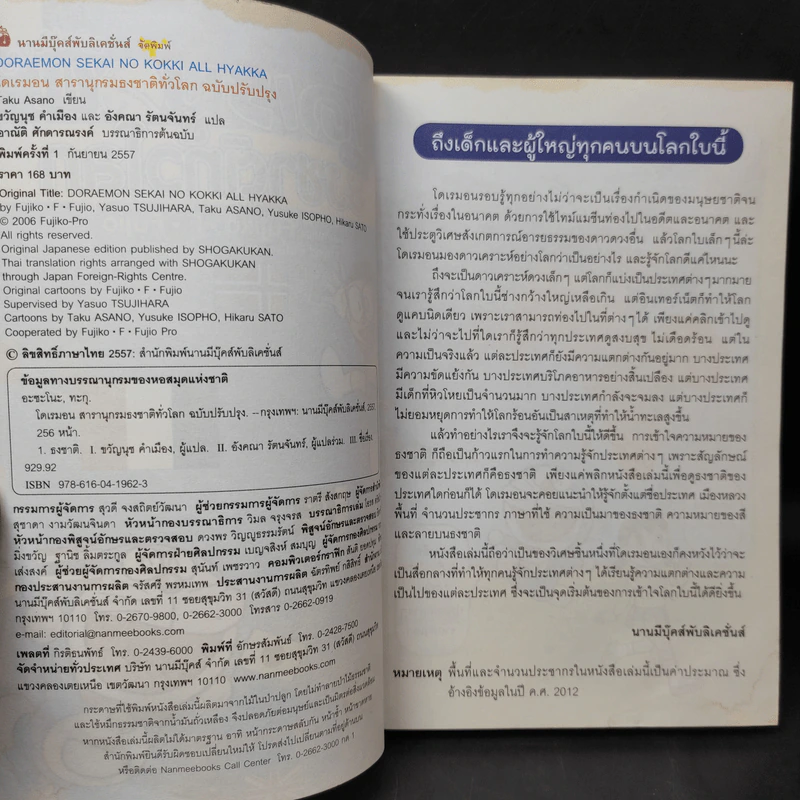 นานมีบุ๊คส์พับลิเคชั่นส์ จัดพิมพ์
DORAEMON SEKAI NO KOKKI ALL HYAKKA
โดเรมอน สารานุกรมธงชาติทั่วโลก ฉบับปรับปรุง
Taku Asano เขียน
ขวัญนุช คำเมือง และ อังคณา รัตนจันทร์ แปล
อาณัติ ศักดารณรงค์ บรรณาธิการต้นฉบับ
พิมพ์ครั้งที่ 1 กันยายน 2557
ราคา 168 บาท
Original Title: DORAEMON SEKAI NO KOKKI ALL HYAKKA
by Fujiko・F・Fujio, Yasuo TSUJIHARA, Taku ASANO, Yusuke ISOPHO, Hikaru SATO
© 2006 Fujiko-Pro
All rights reserved.
Original Japanese edition published by SHOGAKUKAN.
Thai translation rights arranged with SHOGAKUKAN
through Japan Foreign-Rights Centre.
Original cartoons by Fujiko・F・Fujio
Supervised by Yasuo TSUJIHARA
Cartoons by Taku ASANO, Yusuke ISOPHO, Hikaru SATO
Cooperated by Fujiko・F・Fujio Pro
© ลิขสิทธิ์ภาษาไทย 2557: สำนักพิมพ์นานมีบุ๊คส์พับลิเคชั่นส์
ข้อมูลทางบรรณานุกรมของหอสมุดแห่งชาติ
อะซะโนะ, ทะกุ.
โดเรมอน สารานุกรมธงชาติทั่วโลก ฉบับปรับปรุง. --กรุงเทพฯ: นานมีบุ๊คส์พับลิเคชั่นส์, 2557
256 หน้า.
1. ธงชาติ. I. ขวัญนุช คำเมือง, ผู้แปล. II. อังคณา รัตนจันทร์, ผู้แปลร่วม. III. ชื่อเรื่อง.
929.92
ISBN 978-616-04-1962-3
กรรมการผู้จัดการ สุวดี จงสถิตย์วัฒนา ผู้ช่วยกรรมการผู้จัดการ ราตรี สังสกฤษ
สุชาดา งามวัฒนจินดา หัวหน้ากองบรรณาธิการ วิมล จรุงจรส บรรณาธิการเล่ม
หัวหน้ากองพิสูจน์อักษรและตรวจสอบ ดวงพร วิญญูธรรมรัตน์ พิสูจน์อักษรและตรวจสอบ
มิ่งขวัญ ฐานิช ลิ้มตระกูล ผู้จัดการฝ่ายศิลปกรรม เบญจสิงห์ สมบุญ ผู้จัดการกองศิลปกรรม
เส่งสงค์ ผู้ช่วยผู้จัดการกองศิลปกรรม สุนันท์ เพชรวาว คอมพิวเตอร์กราฟิก
กองประสานงานการผลิต จรัสศรี พรหมเทพ ประสานงานการผลิต ฉัตรทิพย์ กสิสิทธิ์
นานมีบุ๊คส์พับลิเคชั่นส์ จำกัด เลขที่ 11 ซอยสุขุมวิท 31 (สวัสดี) ถนนสุขุมวิท แขวงคลองเตยเหนือ
กรุงเทพฯ 10110 โทร. 0-2670-9800, 0-2662-3000 โทรสาร 0-2662-0919
e-mail: editorial@nanmeebooks.com
เพลตที่ กิรติธนพัทธ์ โทร. 0-2439-6000 พิมพ์ที่ อักษรสัมพันธ์ โทร. 0-2428-7500
จัดจำหน่ายทั่วประเทศ บริษัท นานมีบุ๊คส์ จำกัด เลขที่ 11 ซอยสุขุมวิท 31 (สวัสดี) ถนนสุขุมวิท
แขวงคลองเตยเหนือ เขตวัฒนา กรุงเทพฯ 10110 www.nanmeebooks.com
กระดาษที่ใช้พิมพ์หนังสือเล่มนี้ผลิตมาจากไม้ในป่าปลูก โดยไม่ทำลายป่าไม้ธรรมชาติ
และใช้หมึกธรรมชาติจากน้ำมันถั่วเหลือง จึงปลอดภัยต่อมนุษย์และเป็นมิตรต่อสิ่งแวดล้อม
หากหนังสือเล่มนี้ผลิตไม่ได้มาตรฐาน อาทิ หน้ากระดาษสลับกัน หน้าซ้ำ หน้าขาดหาย
สำนักพิมพ์ยินดีรับผิดชอบเปลี่ยนใหม่ให้ โปรดส่งไปเปลี่ยนตามที่อยู่ด้านบน
หรือติดต่อ Nanmeebooks Call Center โทร. 0-2662-3000 กด 1
ถึงเด็กและผู้ใหญ่ทุกคนบนโลกใบนี้
โดเรมอนรอบรู้ทุกอย่างไม่ว่าจะเป็นเรื่องกำเนิดของมนุษยชาติจน
กระทั่งเรื่องในอนาคต ด้วยการใช้ไทม์แมชีนท่องไปในอดีตและอนาคต และ
ใช้ประตูวิเศษสังเกตการณ์อารยธรรมของดาวดวงอื่น แล้วโลกใบเล็กๆ นี้ล่ะ
โดเรมอนมองดาวเคราะห์อย่างโลกว่าเป็นอย่างไร และรู้จักโลกดีแค่ไหนนะ
ถึงจะเป็นดาวเคราะห์ดวงเล็กๆ แต่โลกก็แบ่งเป็นประเทศต่างๆ มากมาย
จนเรารู้สึกว่าโลกใบนี้ช่างกว้างใหญ่เหลือเกิน แต่อินเทอร์เน็ตก็ทำให้โลก
ดูแคบนิดเดียว เพราะเราสามารถท่องไปในที่ต่างๆ ได้ เพียงแค่คลิกเข้าไปดู
และไม่ว่าจะไปที่ใดเราก็รู้สึกว่าทุกประเทศดูสงบสุข ไม่เดือดร้อน แต่ใน
ความเป็นจริงแล้ว แต่ละประเทศก็ยังมีความแตกต่างกันอยู่มาก บางประเทศ
มีความขัดแย้งกัน บางประเทศบริโภคอาหารอย่างสิ้นเปลือง แต่บางประเทศ
มีเด็กที่หิวโหยเป็นจำนวนมาก บางประเทศกำลังจะจมลง แต่บางประเทศก็
ไม่ยอมหยุดการทำให้โลกร้อนอันเป็นสาเหตุที่ทำให้น้ำทะเลสูงขึ้น
แล้วทำอย่างไรเราจึงจะรู้จักโลกใบนี้ให้ดีขึ้น การเข้าใจความหมายของ
ธงชาติ ก็ถือเป็นก้าวแรกในการทำความรู้จักประเทศต่างๆ เพราะสัญลักษณ์
ของแต่ละประเทศก็คือธงชาติ เพียงแค่พลิกหนังสือเล่มนี้เพื่อดูธงชาติของ
ประเทศใดก่อนก็ได้ โดเรมอนจะคอยแนะนำให้รู้จักตั้งแต่ชื่อประเทศ เมืองหลวง
พื้นที่ จำนวนประชากร ภาษาที่ใช้ ความเป็นมาของธงชาติ ความหมายของสี
และลายบนธงชาติ
หนังสือเล่มนี้ถือว่าเป็นของวิเศษชิ้นหนึ่งที่โดเรมอนเองก็คงหวังไว้ว่าจะ
เป็นสื่อกลางที่ทำให้ทุกคนรู้จักประเทศต่างๆ ได้เรียนรู้ความแตกต่างและความ
เป็นไปของแต่ละประเทศ ซึ่งจะเป็นจุดเริ่มต้นของการเข้าใจโลกใบนี้ได้ดียิ่งขึ้น
นานมีบุ๊คส์พับลิเคชั่นส์
หมายเหตุ พื้นที่และจำนวนประชากรในหนังสือเล่มนี้เป็นค่าประมาณ ซึ่ง
อ้างอิงข้อมูลในปี ค.ศ. 2012